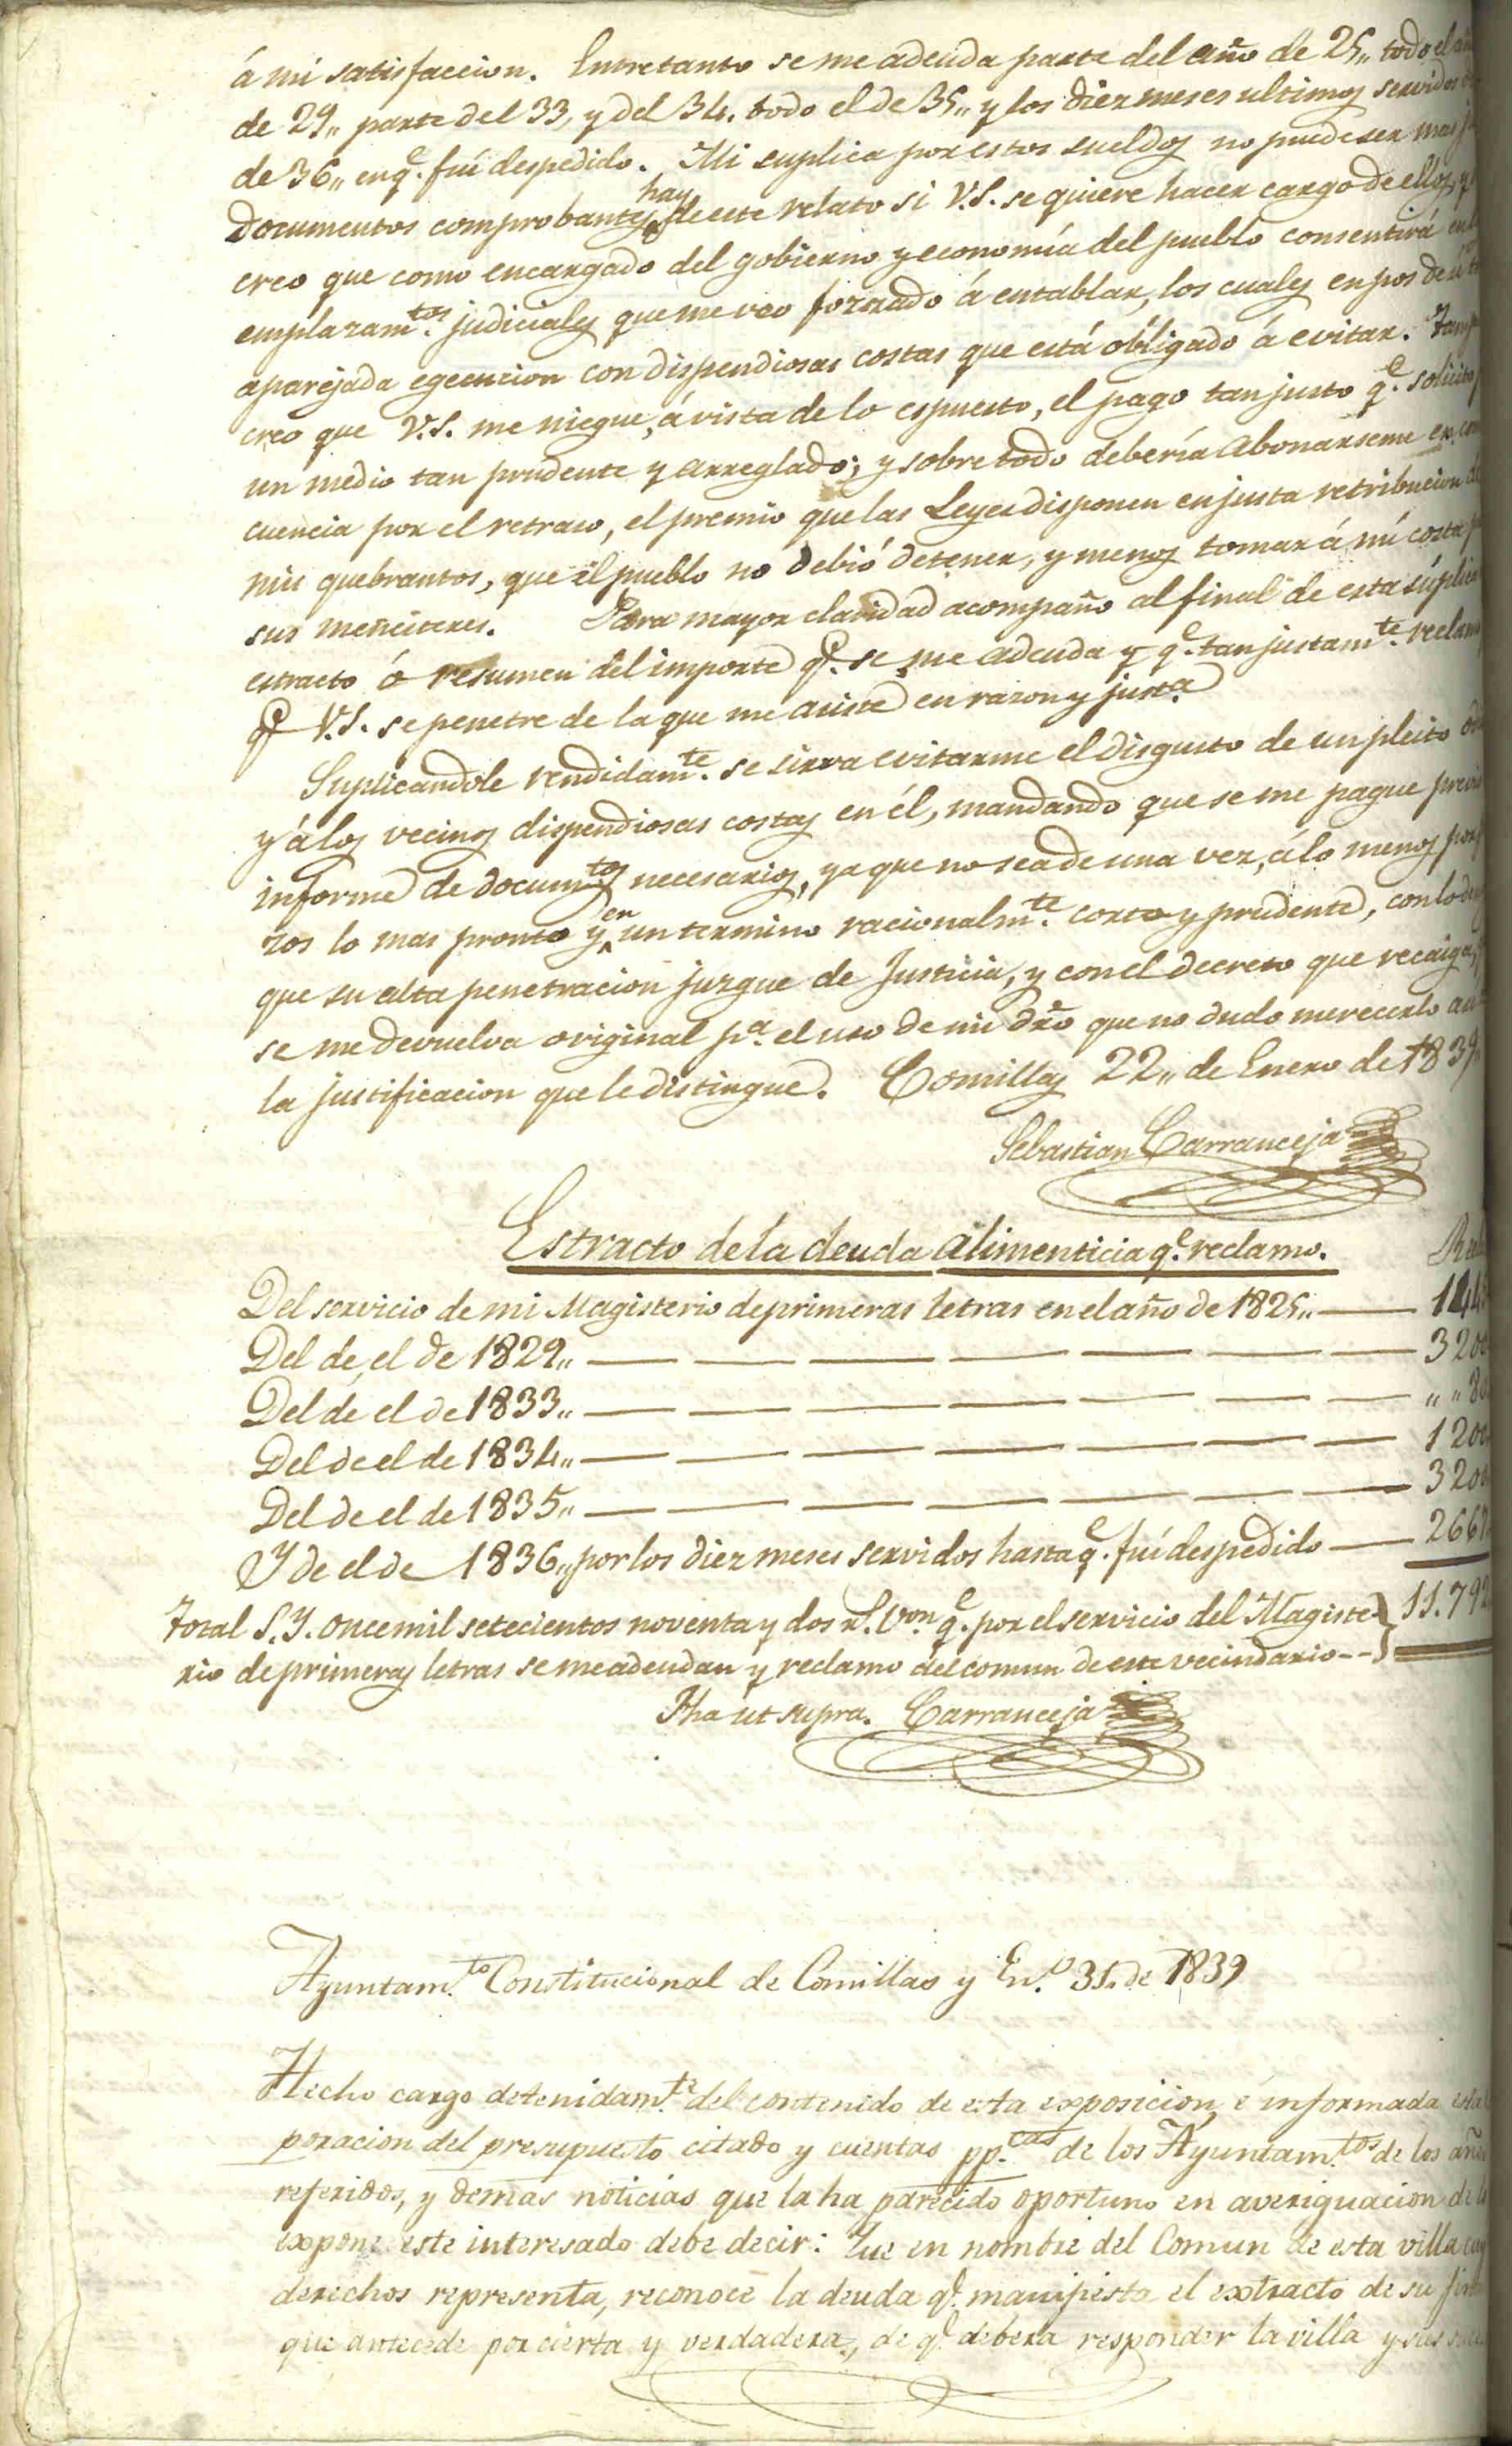 á mi satisfaccion. Entretanto se me adeuda parte del año de 25,, todo el
de 29,, parte del 33, y del 34. todo el de 35,, y los diez meses ultimos servidos
de 36,, en q.e fuí despedido. Mi suplica por estos sueldos no puede ser mas
hay
Documentos comprobantes de este relato si V.S. se quiere hacer cargo de ellos, y
creo que como encargado del gobierno y economía del pueblo consentirá
emplazam.tos judiciales que me veo forzado á entablar, los cuales en pos de
aparejada egecucion con dispendiosas costas que está obligado á evitar.
creo que V.S. me niegue, á vista de lo espuesto, el pago tan justo q.e solicito
un medio tan prudente y arreglado; y sobre todo debería abonarseme en
cuencia por el retraso, el premio que las Leyes disponen en justa retribucion
mis quebrantos, que el pueblo no debió detener, y menos tomar á mi costa
sus menesteres. Para mayor claridad acompaño al final de esta súplica
estracto ó resumen del importe q.e se me adeuda y q.e tan justam.te reclamo
q.e V.S. se penetre de la que me asiste en razon y just.a
Suplicandole rendidam.te se sirva evitarme el disgusto de un pleito
y á los vecinos dispendiosas costas en él, mandando que se me pague previo
informe de docum.tos necesarios, ya que no sea de una vez, á lo menos por
en
zos lo mas pronto y un termino racionalm.te corto y prudente, con lo
que su alta penetracion juzgue de Justicia, y con el decreto que recaiga,
se me devuelva original p.a el uso de mi dro que no dudo merecerlo
la justificacion que le distingue. Comillas 22,, de Enero de 1839
Sebastian Carranceja
Estracto de la deuda alimenticia q.e reclamo.
Del servicio de mi Magisterio de primeras letras en el año de 1825,, —
Del de, el de 1829,, — 3200
Del de el de 1833,, —
Del de el de 1834,, — 1200
Del de el de 1835,, — 3200
Y de el de 1836,, por los diez meses servidos hasta q.e fuí despedido —
Total S.Y. once mil setecientos noventa y dos r.s von q.e por el servicio del Magiste- } 11.792
rio de primeras letras se me adeudan y reclamo del comun de este vecindario--
Fha ut supra. Carranceja
Ayuntam.to Constitucional de Comillas y En.o 31,, de 1839
Hecho cargo detenidam.te del contenido de esta exposicion, é informada esta
poracion del presupuesto citado y cuentas pp.cas de los Ayuntam.tos de los años
referidos, y demas noticias que la ha parecido oportuno en averiguacion de lo
expone este interesado debe decir: Que en nombre del Comun de esta villa
derechos representa, reconoce la deuda q.e manifiesta el extracto de su
que antecede por cierta y verdadera, de q.e debera responder la villa y sus